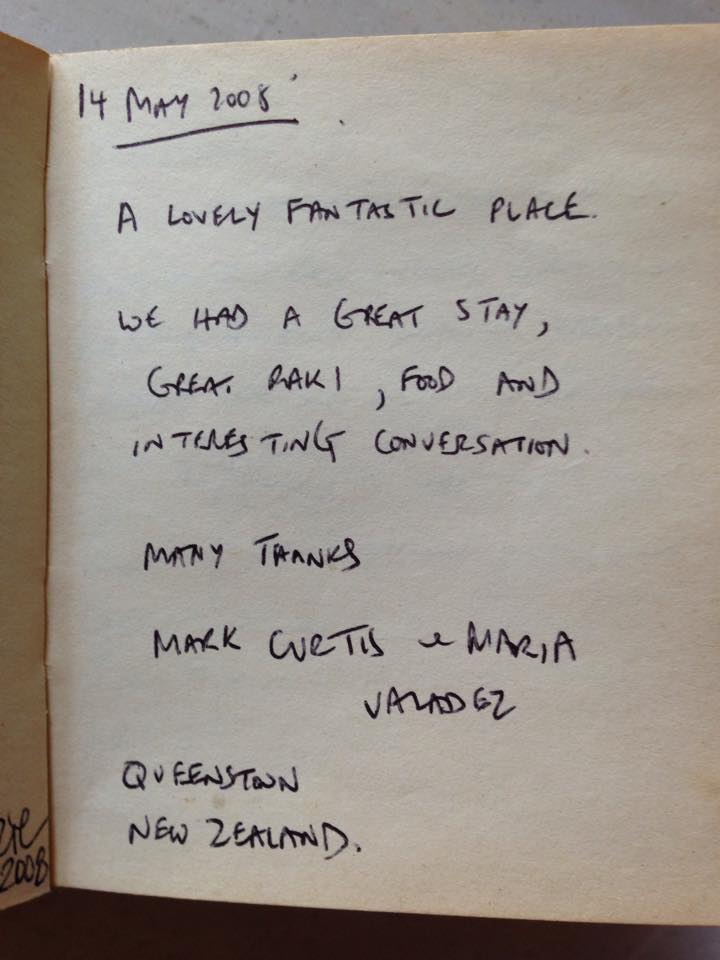 14 MAY 2008
A LOVELY FANTASTIC PLACE.
WE HAD A GREAT STAY,
GREAT RAKI, FOOD AND
INTERESTING CONVERSATION.
MANY THANKS
MARK CURTIS & MARIA
VALADEZ
QUEENSTOWN
NEW ZEALAND.
2008